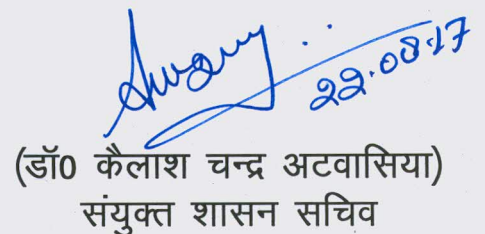 22.08.17
(डॉ0 कैलाश चन्द्र अटवासिया)
संयुक्त शासन सचिव